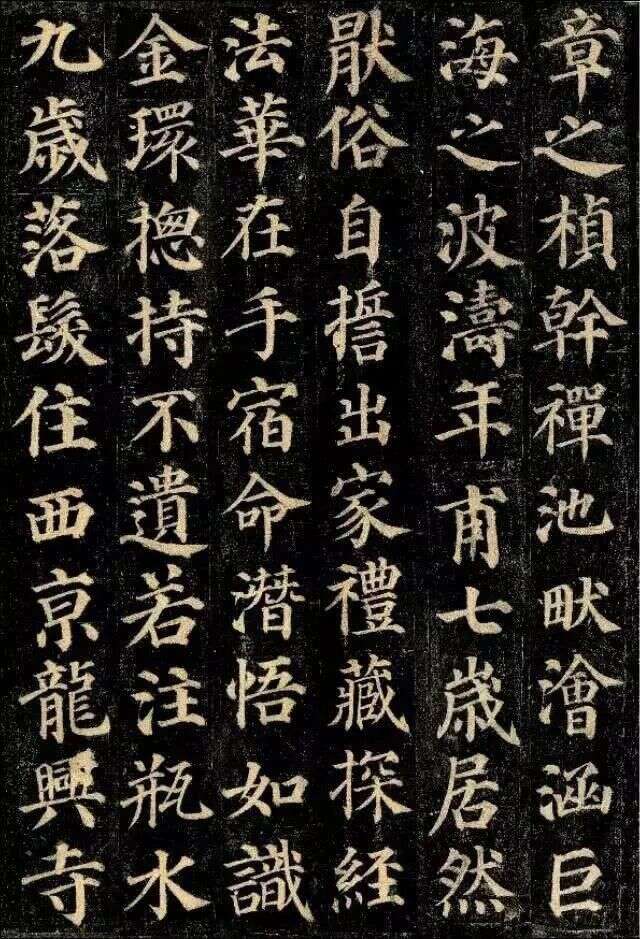 章之楨幹禪池畎澮涵巨
海之波濤年甫七歲居然
猒俗自誓出家禮藏探經
法華在手宿命潛悟如識
金環揔持不遺若注瓶水
九歲落髮住西京龍興寺